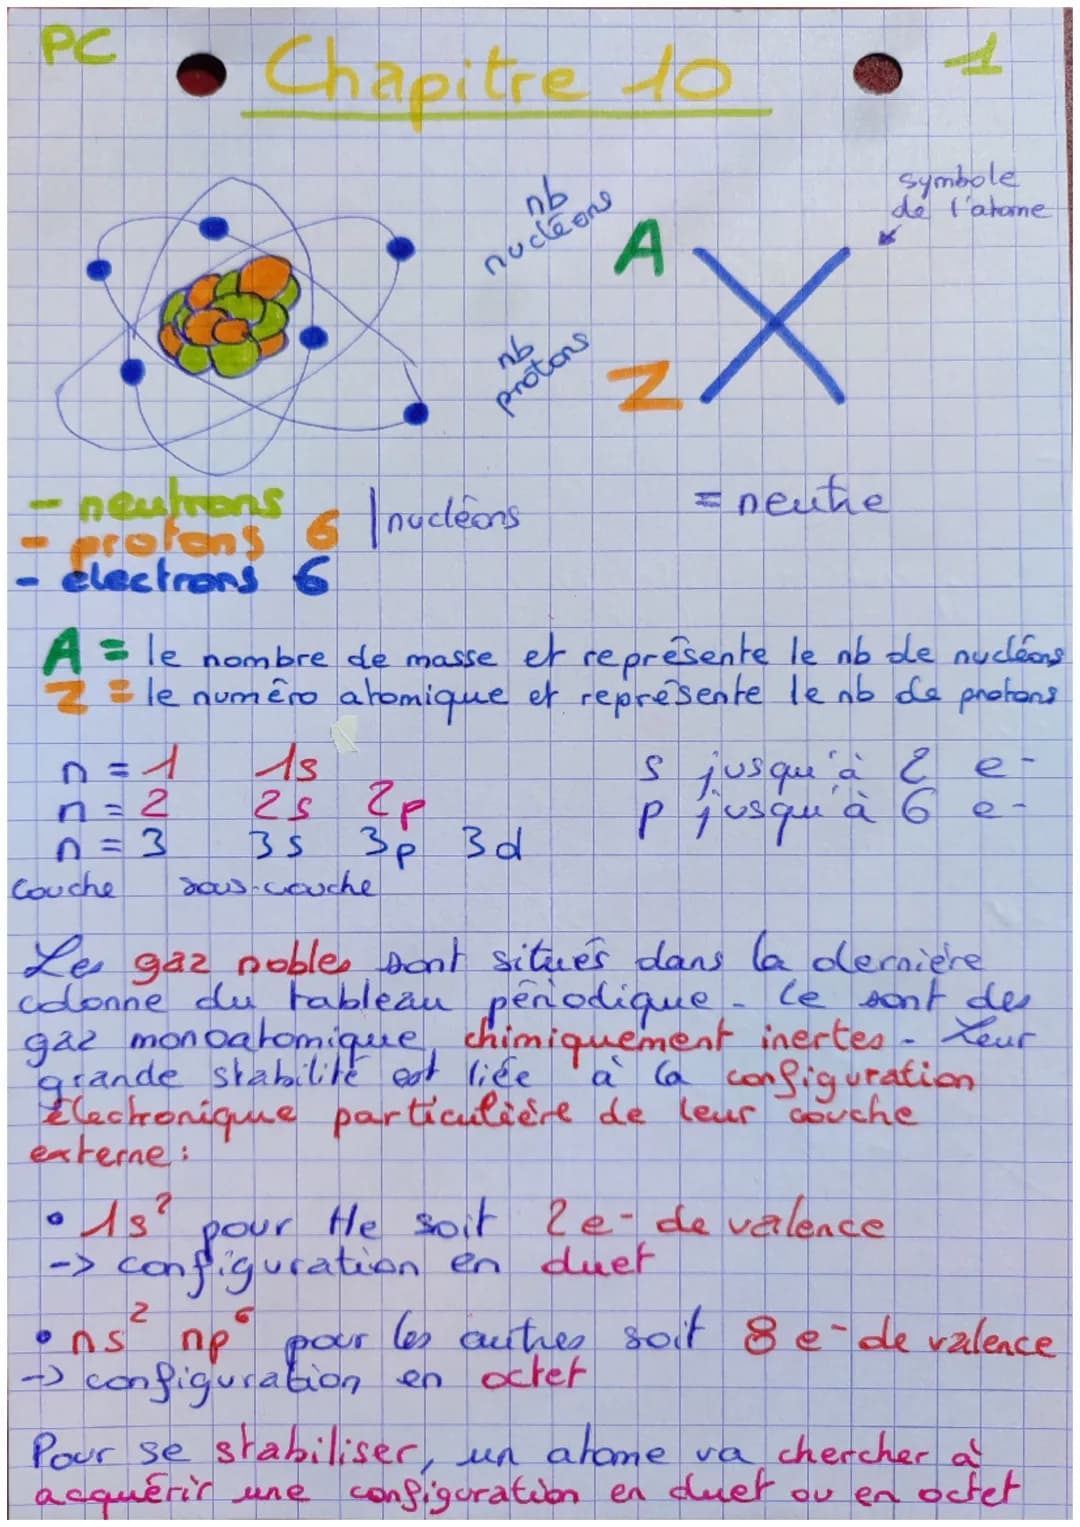 PC
Chapitre 10
1
symbole
de l'atome
nb
nucléons
A
X
nb
protons
Z
- neutrons
- protons 6 | nucléons
- électrons 6
= neutre
A = le nombre de masse et représente le nb de nucléons
Z = le numéro atomique et représente le nb de protons
n = 1 1s s jusqu'à 2 e-
n = 2 2s 2p p jusqu'à 6 e-
n = 3 3s 3p 3d
Couche sous-couche
Les gaz nobles sont situés dans la dernière
colonne du tableau périodique. Ce sont des
gaz monoatomique, chimiquement inertes. Leur
grande stabilité est liée à la configuration
électronique particulière de leur couche
externe :
• 1s² pour He soit 2 e- de valence
-> configuration en duet
• ns² np⁶ pour les autres soit 8 e- de valence
-> configuration en octet
Pour se stabiliser, un atome va chercher à
acquérir une configuration en duet ou en octet